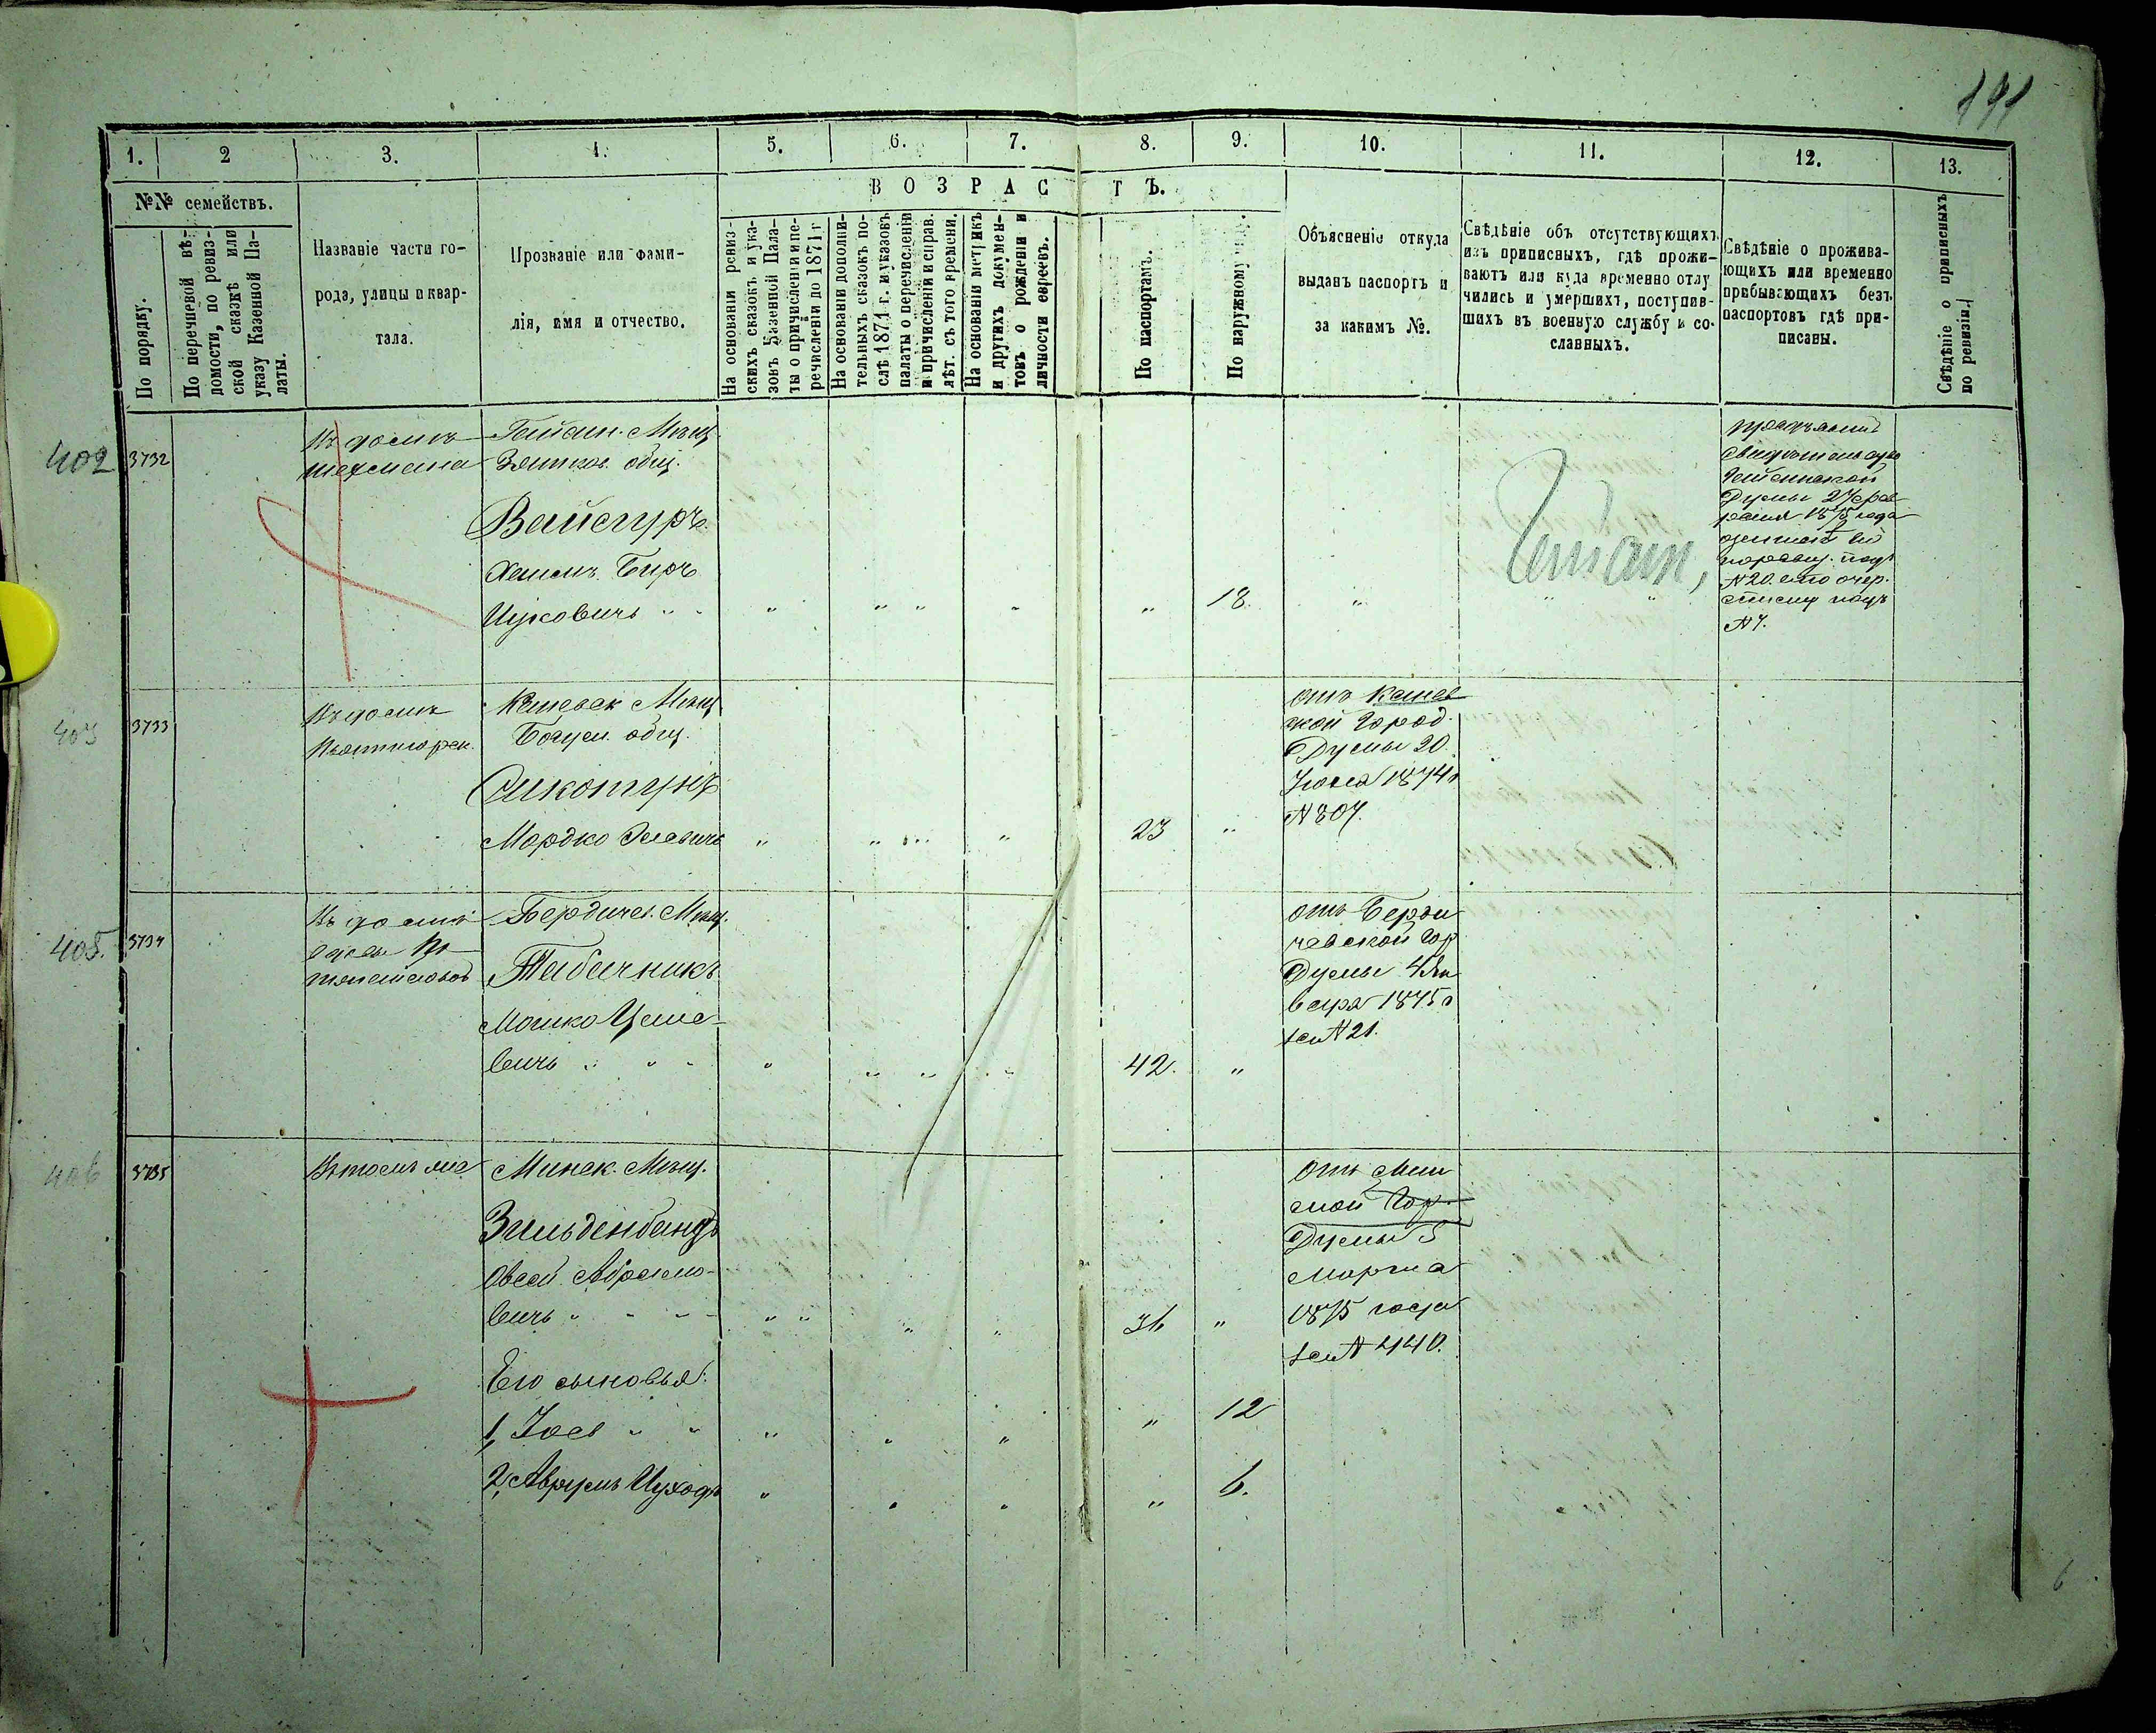 191
1. 2 3. 4. 5. 6. 7. 8. 9. 10. 11. 12. 13.
№№ семействъ.
По порядку.
По перечневой вѣ-
домости, по ревиз-
ской сказкѣ или
указу Казенной Па-
латы.
Названіе части го-
рода, улицы и квар-
тала.
Прозваніе или фами-
лія, имя и отчество.
ВОЗРАСТЪ.
На основаніи ревиз-
скихъ сказокъ и ука-
зовъ Казенной Пала-
ты о причисленіи и пе-
речисленіи до 1871 г
На основаніи дополни-
тельныхъ сказокъ по-
слѣ 1871 г. и указовъ
палаты о перечисленіи
и причисленіи и справ.
лѣт. съ того времени.
На основаніи метрикъ
и другихъ докумен-
товъ о рожденіи и
личности евреевъ.
По паспортамъ.
По наружному
Объясненіе откуда
выданъ паспортъ и
за какимъ №.
Свѣдѣніе объ отсутствующихъ
изъ приписныхъ, гдѣ прожи-
ваютъ или куда временно отлу
чились и умершихъ, поступив-
шихъ въ военную службу и со-
славныхъ.
Свѣдѣніе о прожива-
ющихъ или временно
прибывающихъ безъ
паспортовъ гдѣ при-
писаны.
Свѣдѣніе о приписныхъ
по ревизіи.
402 3732
Въ домѣ
Шехмена
Гайсин. Мѣщ.
Зятков. общ.
Вайсгуръ
Хаимъ Беръ
Ицковичъ " " " " " " " 18. " " "
Гайсин,
предъявилъ
свидѣтельство
Гайсинской
Думы 27 фев
раля 1875 года
подъ
№ 20.
списку подъ
№ 7.
403 3733
Въ домѣ
Пятигорск.
Каневск Мѣщ
Богусл. общ.
Сикотунъ
Мордко " " " " 23 "
отъ Канев
ской Город.
Думы 20.
Іюля 1874 г
№ 807.
405. 3734
Въ домѣ
Бердичев. Мѣщ.
Табачникъ
Мошко
вичъ " " " " " " " 42. "
отъ Берди
чевской Гор
Думы 4 Ян
варя 1875 г
за № 21.
406 3735
Въ томъ же
Минск. Мѣщ.
Зильденбандъ
Овсей Абрамо-
вичъ " " " " " " " 36 "
отъ Мин
ской Гор.
Думы 5
Марта
1875 года
за № 440.
Его сыновья:
1, Іось " " " " " " 12
2, Аврумъ Ицхокъ " " " " 6.
6